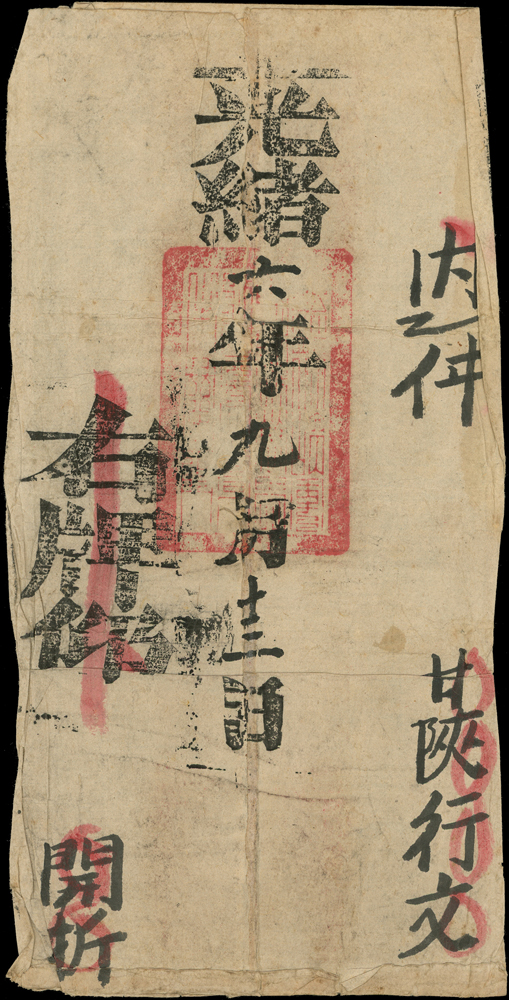 内乙件
甘陝行文
光緒六年九月十三日
右牌仰
開折